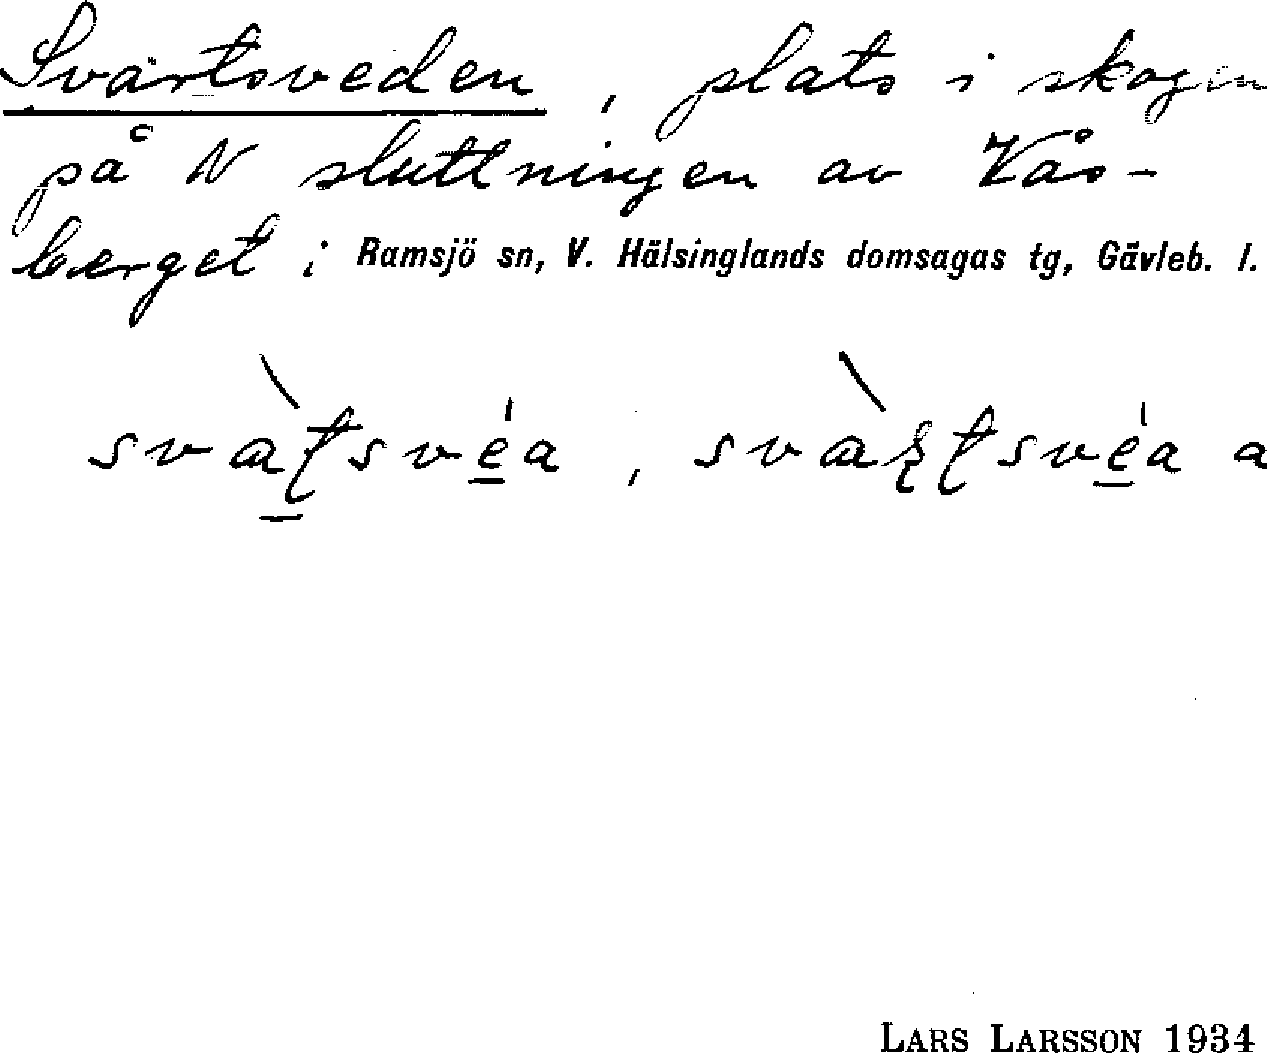 Svärtsveden, plats i skogen
på N sluttningen av Kås-
berget i Ramsjö sn, V. Hälsinglands domsagas tg, Gävleb. l.
LARS LARSSON 1934